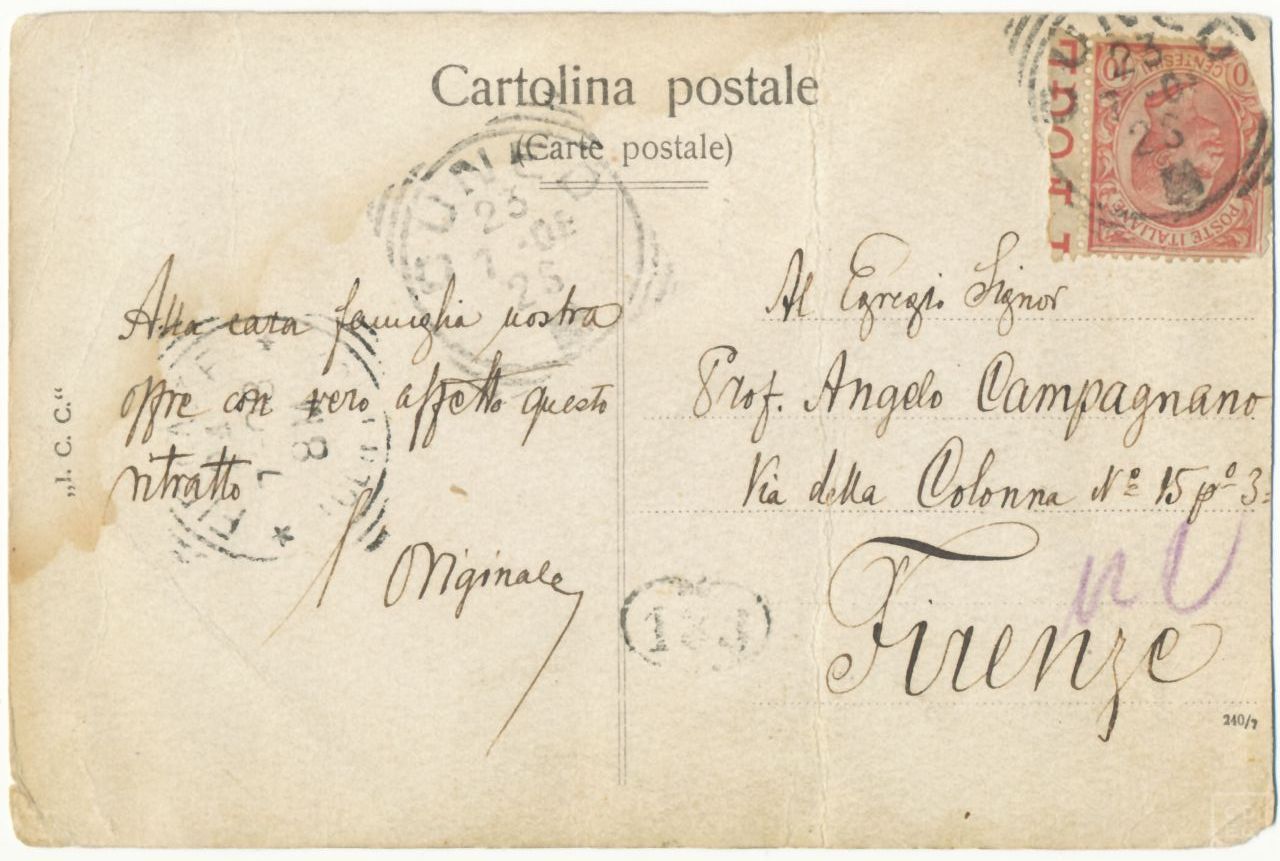 Cartolina postale
(Carte postale)
CUNEO
23
1-08
25
CUNEO
23
25
CENTESIMI
POSTE ITALIANE
Alla cara famiglia nostra
offre con vero affetto questo
ritratto
l'Originale
Al Egregio Signor
Prof. Angelo Campagnano
Via della Colonna Nº 15 pº 3=
Firenze
FIRENZE
„I. C. C."
240/7